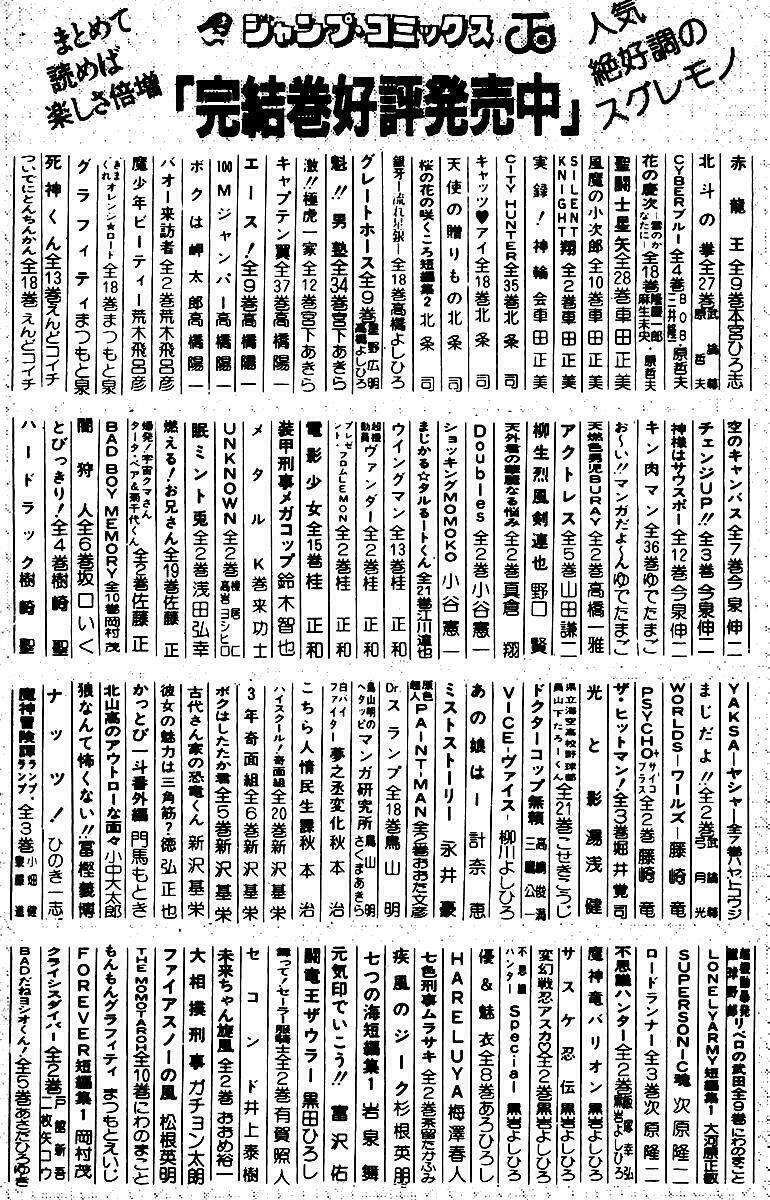 まとめて
読めば
楽しさ倍増
ジャンプ・コミックス
人気
絶好調の
スグレモノ
「完結巻好評発売中」
赤龍王 全9巻 本宮ひろ志
北斗の拳 全27巻 武論尊 原哲夫
CYBERブルー 全4巻 BOB 三井隆一 原哲夫
花の慶次―雲のかなたに― 全18巻 隆慶一郎 麻生未央 原哲夫
聖闘士星矢 全28巻 車田正美
風魔の小次郎 全10巻 車田正美
SILENT KNIGHT翔 全2巻 車田正美
実録!神輪会 車田正美
CITY HUNTER 全35巻 北条司
キャッツ♥アイ 全18巻 北条司
天使の贈りもの 北条司
桜の花の咲くころ 短編集2 北条司
銀牙―流れ星銀― 全18巻 高橋よしひろ
グレートホース 全9巻 星野広明 高橋よしひろ
魁!!男塾 全34巻 宮下あきら
激!!極虎一家 全12巻 宮下あきら
キャプテン翼 全37巻 高橋陽一
エース! 全9巻 高橋陽一
100Mジャンパー 高橋陽一
ボクは岬太郎 高橋陽一
バオー来訪者 全2巻 荒木飛呂彦
魔少年ビーティー 荒木飛呂彦
きまぐれオレンジ★ロード 全18巻 まつもと泉
グラフィティ まつもと泉
死神くん 全13巻 えんどコイチ
ついでにとんちんかん 全18巻 えんどコイチ
空のキャンバス 全7巻 今泉伸二
チェンジUP!! 全3巻 今泉伸二
神様はサウスポー 全12巻 今泉伸二
キン肉マン 全36巻 ゆでたまご
お〜い!!マンガだよ〜ん ゆでたまご
天燃色男児BURAY 全2巻 高橋一雅
アクトレス 全5巻 山田謙二
柳生烈風剣連也 野口賢
天外君の華麗なる悩み 全2巻 真倉翔
Doubles 全2巻 小谷憲一
ショッキングMOMOKO 小谷憲一
まじかる☆タルるートくん 全21巻 江川達也
ウイングマン 全13巻 桂正和
超機動員ヴァンダー 全2巻 桂正和
プレゼント・フロムLEMON 全2巻 桂正和
電影少女 全15巻 桂正和
装甲刑事メガコップ 鈴木智也
メタルK 巻来功士
UNKNOWN 全2巻 棟居仁 高岩ヨシヒロ
眠ミント兎 全2巻 浅田弘幸
燃える!お兄さん 全19巻 佐藤正
爆発!宇宙クマさん タータ・ベア&獅千代くん 全2巻 佐藤正
BAD BOY MEMORY 全10巻 岡村茂
闇狩人 全6巻 坂口いく
とびっきり! 全4巻 樹崎聖
ハードラック 樹崎聖
YAKSA―ヤシャ― 全7巻 ハヤトコウジ
まじだよ!! 全2巻 武論尊 弓月光
WORLDS―ワールズ― 藤崎竜
PSYCHO+ サイコプラス 全2巻 藤崎竜
ザ・ヒットマン! 全3巻 堀井覚司
光と影 湯浅健
県立海空高校野球部員山下たろーくん 全21巻 こせきこうじ
ドクターコップ無頼 高嶋俊満 三鷹公一
VICE―ヴァイス― 柳川よしひろ
あの娘は― 計奈恵
ミストストーリー 永井豪
原色超人PAINT-MAN 全2巻 おおた文彦
Dr.スランプ 全18巻 鳥山明
鳥山明のヘタッピマンガ研究所 鳥山明 さくまあきら
白バイファイター夢之丞変化 秋本治
こちら人情民生課 秋本治
ハイスクール!奇面組 全20巻 新沢基栄
3年奇面組 全6巻 新沢基栄
ボクはしたたか君 全5巻 新沢基栄
古代さん家の恐竜くん 新沢基栄
彼女の魅力は三角筋? 徳弘正也
かっとび一斗番外編 門馬もとき
北山高のアウトローな面々 小中大太郎
狼なんて怖くない!! 冨樫義博
ナッツ! ひのき一志
魔神冒険譚ランプ・ランプ 全3巻 小畑健 泉藤進
超機動暴発蹴球野郎 リベロの武田 全9巻 にわのまこと
LONELY ARMY 短編集1 大河原正敏
SUPERSONIC魂 次原隆二
ロードランナー 全3巻 次原隆二
不思議ハンター 全2巻 飯塚幸弘 黒岩よしひろ
魔神竜バリオン 黒岩よしひろ
サスケ忍伝 黒岩よしひろ
変幻戦忍アスカ 全2巻 黒岩よしひろ
不思議ハンターSpecial 黒岩よしひろ
優&魅衣 全8巻 あろひろし
HARELUYA 梅澤春人
七色刑事ムラサキ 全2巻 茶留たかふみ
疾風のジーク 杉根英明
七つの海 短編集1 岩泉舞
元気印でいこう!! 富沢佑
闘竜王ザウラー 黒田ひろし
舞って!セーラー服騎士 全2巻 有賀照人
セコンド 井上泰樹
未来ちゃん旋風 全2巻 おおめ裕一
大相撲刑事 ガチョン太郎
ファイアスノーの風 松根英明
THE MOMOTAROH 全10巻 にわのまこと
もんもんグラフィティ まつもとえいじ
FOREVER 短編集1 岡村茂
クライシスダイバー 全2巻 戸館新吾 二枚矢コウ
BADだねヨシオくん! 全5巻 あさだひろゆき